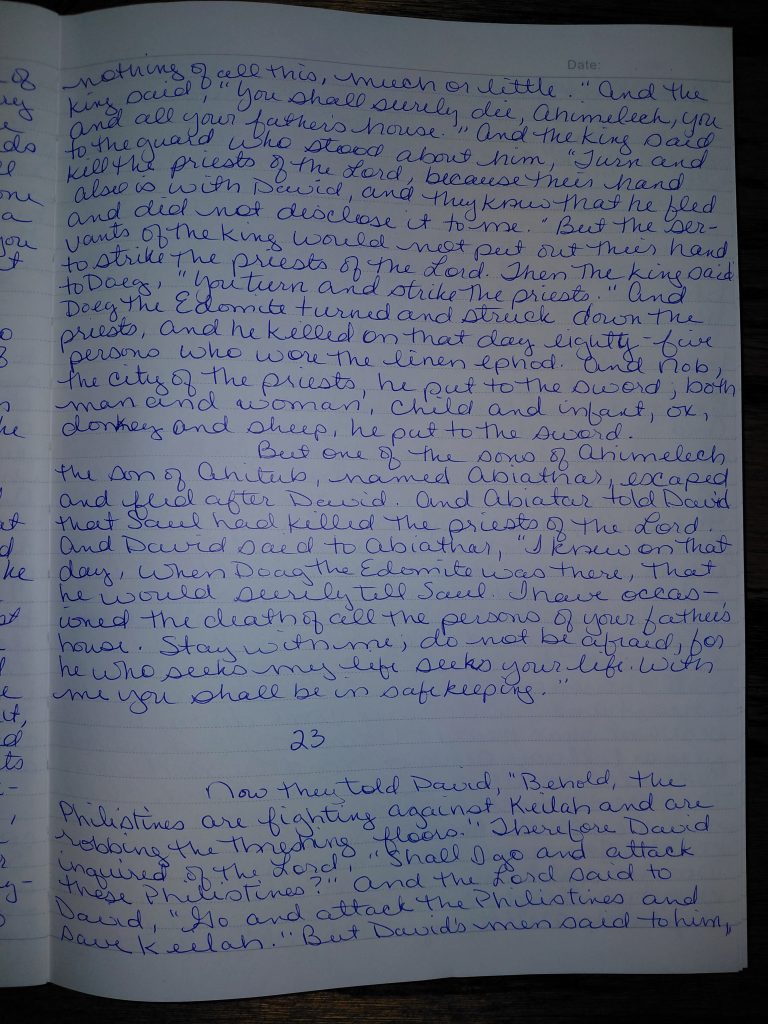 Date:
nothing of all this, much or little." And the
king said, "You shall surely die, Ahimelech, you
and all your father's house." And the king said
to the guard who stood about him, "Turn and
kill the priests of the Lord, because their hand
also is with David, and they knew that he fled
and did not disclose it to me." But the ser-
vants of the king would not put out their hand
to strike the priests of the Lord. Then the king said
to Doeg, "You turn and strike the priests." And
Doeg the Edomite turned and struck down the
priests, and he killed on that day eighty-five
persons who wore the linen ephod. And Nob,
the city of the priests, he put to the sword; both
man and woman, child and infant, ox,
donkey and sheep, he put to the sword.
But one of the sons of Ahimelech
the son of Ahitub, named Abiathar, escaped
and fled after David. And Abiatar told David
that Saul had killed the priests of the Lord.
And David said to Abiathar, "I knew on that
day, when Doag the Edomite was there, that
he would surely tell Saul. I have occas-
ioned the death of all the persons of your father's
house. Stay with me; do not be afraid, for
he who seeks my life seeks your life. With
me you shall be in safekeeping."
23
Now they told David, "Behold, the
Philistines are fighting against Keilah and are
robbing the threshing floors." Therefore David
inquired of the Lord, "Shall I go and attack
these Philistines?" And the Lord said to
David, "Go and attack the Philistines and
save Keilah." But David's men said to him,